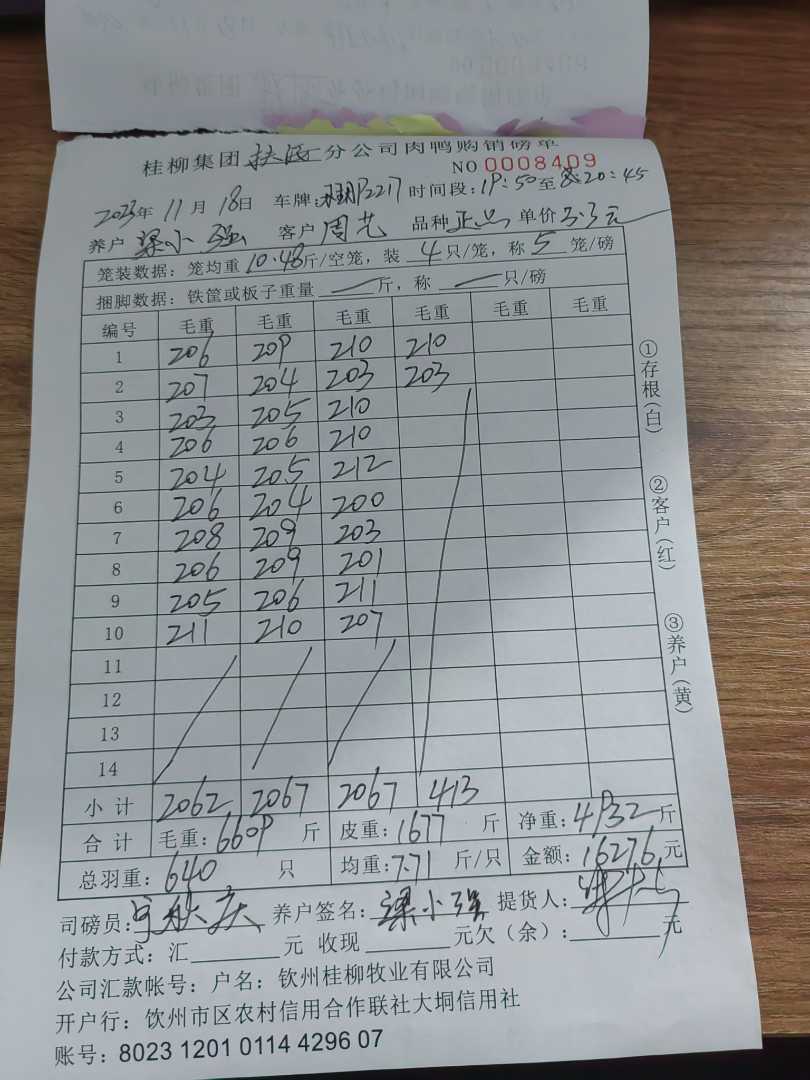 桂柳集团 扶绥 分公司肉鸭购销磅单
NO 0008409
2023年 11月 18日 车牌: P2217 时间段: 19:50至 20:45
养户 梁小强 客户 周艺 品种 正品 单价 3.3元
笼装数据: 笼均重 10.48斤/空笼, 装 4只/笼, 称 5 笼/磅
捆脚数据: 铁筐或板子重量 — 斤, 称 — 只/磅
编号 毛重 毛重 毛重 毛重 毛重 毛重
1 206 209 210 210
2 207 204 203 203
3 203 205 210
4 206 206 210
5 204 205 212
6 206 204 200
7 208 209 203
8 206 209 201
9 205 206 211
10 211 210 207
11
12
13
14
小计 2062 2067 2067 413
合计 毛重: 6609 斤 皮重: 1677 斤 净重: 4932 斤
总羽重: 640 只 均重: 7.71 斤/只 金额: 16276元
司磅员: 养户签名: 梁小强 提货人:
付款方式: 汇 元 收现 元欠(余): 元
公司汇款帐号: 户名: 钦州桂柳牧业有限公司
开户行: 饮州市区农村信用合作联社大垌信用社
账号: 8023 1201 0114 4296 07
①存根(白)
②客户(红)
③养户(黄)